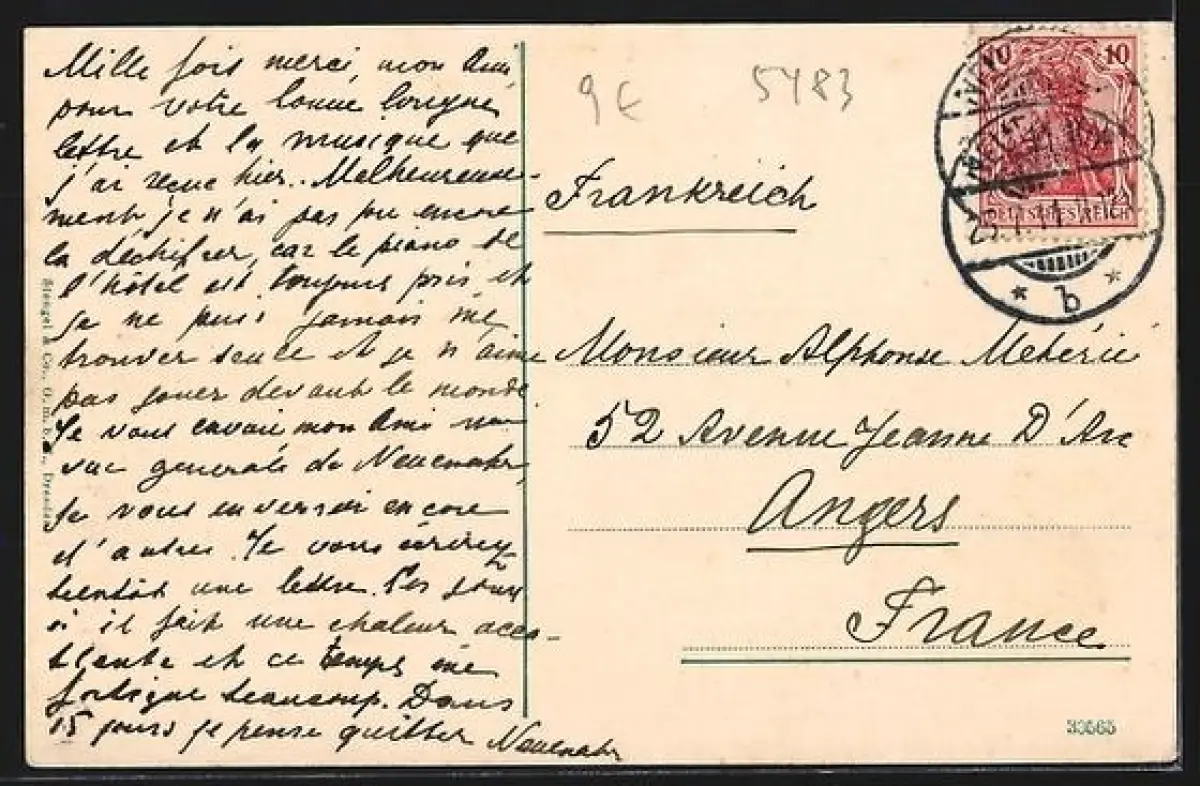 Mille fois merci, mon Ami
pour votre bonne longue
lettre et la musique que
j'ai reçue hier. Malheureuse-
ment je n'ai pas pu encore
la déchifrer, car le piano de
l'hôtel est toujours pris et
je ne puis jamais me
trouver seule et je n'aime
pas jouer devant le monde
Je vous envoie mon Ami une
vue generale de Neuenahr,
je vous enverrai encore
d'autres. Je vous écrirez
bientôt une lettre. Ces jours
ci il fait une chaleur acca-
blante et ce temps me
fatigue beaucoup. Dans
15 jours je pense quitter Neuenahr
Stengel & Co., G.m.b.H., Dresden
9€ 5483
Frankreich
Monsieur Alphonse Metérié
52 Avenue Jeanne D'Arc
Angers
France
10
DEUTSCHES REICH
* b *
33565